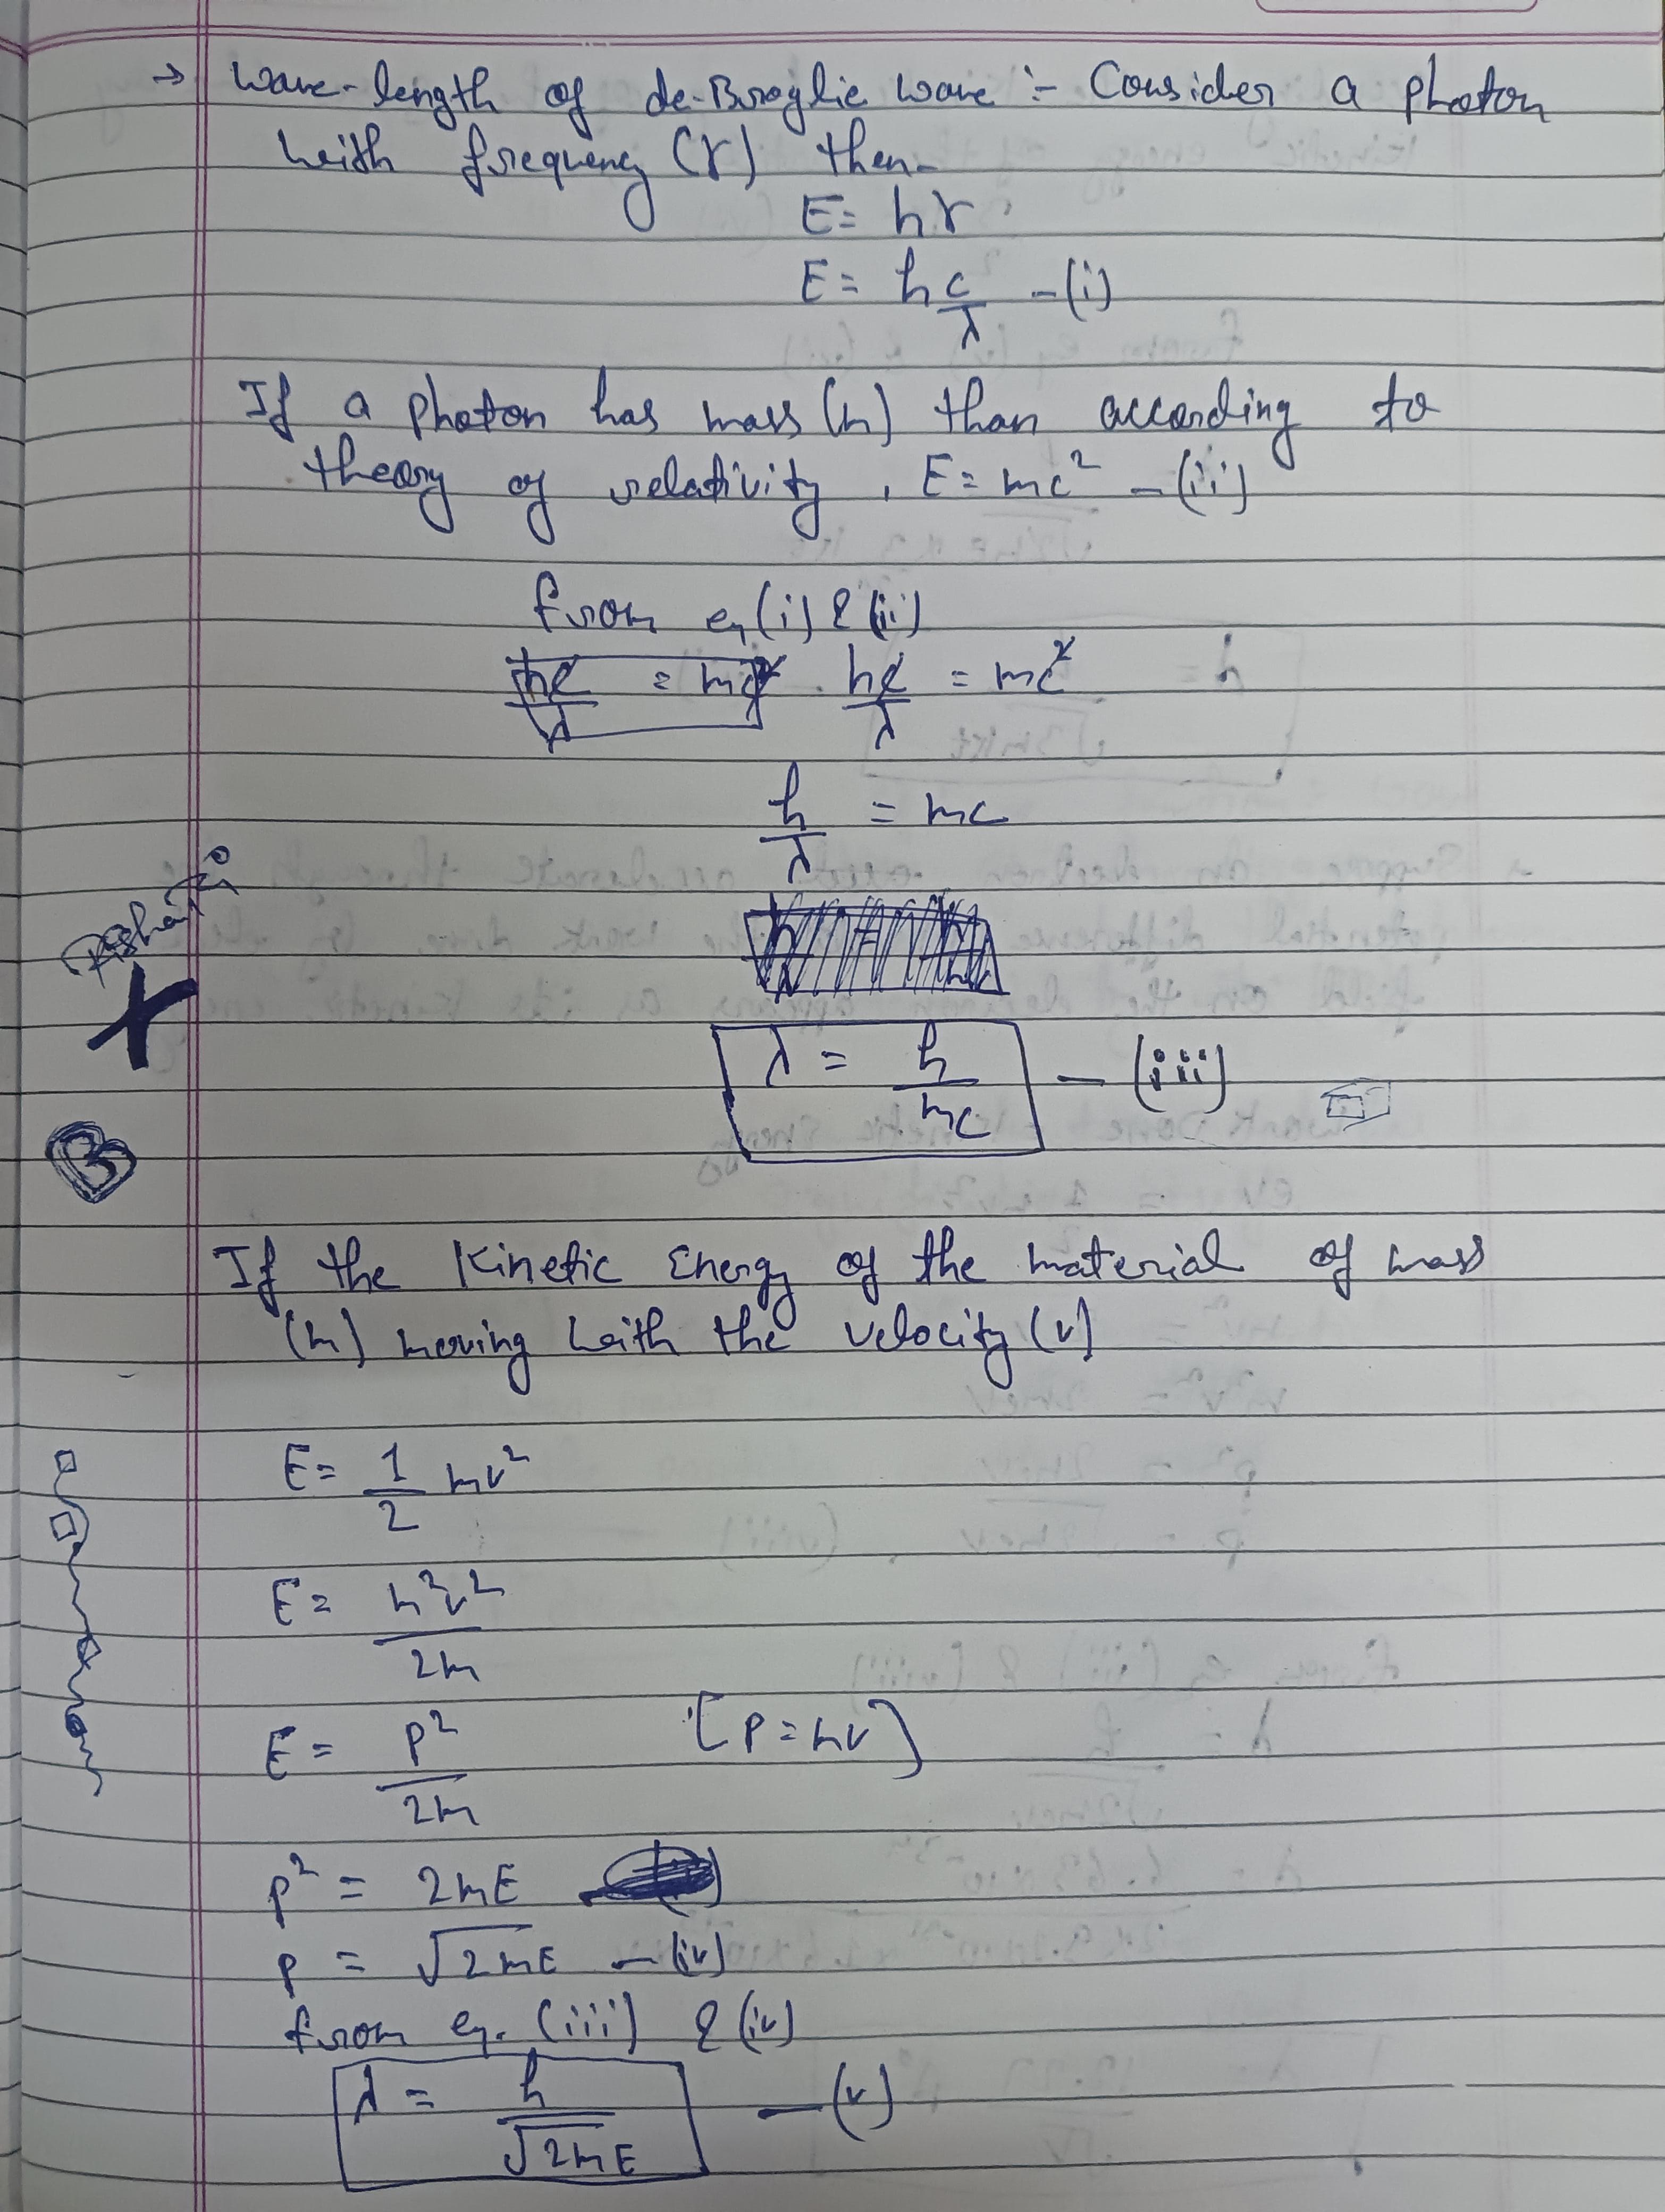 → Wave-length of de-Broglie wave :- Consider a photon
with frequency (γ) then-
E = hγ
E = hc/λ - (i)
If a photon has mass (m) than according to
theory of relativity, E = mc² - (ii)
from eq (i) & (ii)
hc/λ = mc² hc/λ = mc²
h/λ = mc
λ = h/mc - (iii)
If the Kinetic Energy of the material of mass
(m) moving with the velocity (v)
E = 1/2 mv²
E = m²v²/2m
E = p²/2m [p = mv]
p² = 2mE
p = √2mE - (iv)
from eq. (iii) & (iv)
λ = h/√2mE - (v)